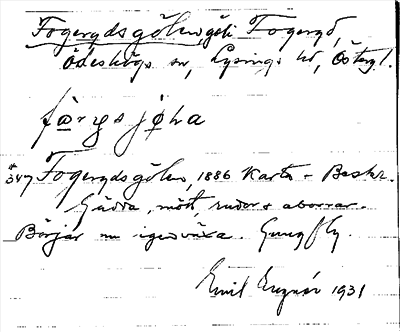 Fogerydsgölen, göl i Fogeryd,
Ödeshögs sn, Lysings hd, Östergl.
fo̱rysjøka
*347 Fogerydsgölen, 1886 Karta - Beskr.
Gädda, mört, rudor o aborrar.
Börjar nu igenväxa. Gungfly.
Emil 1931